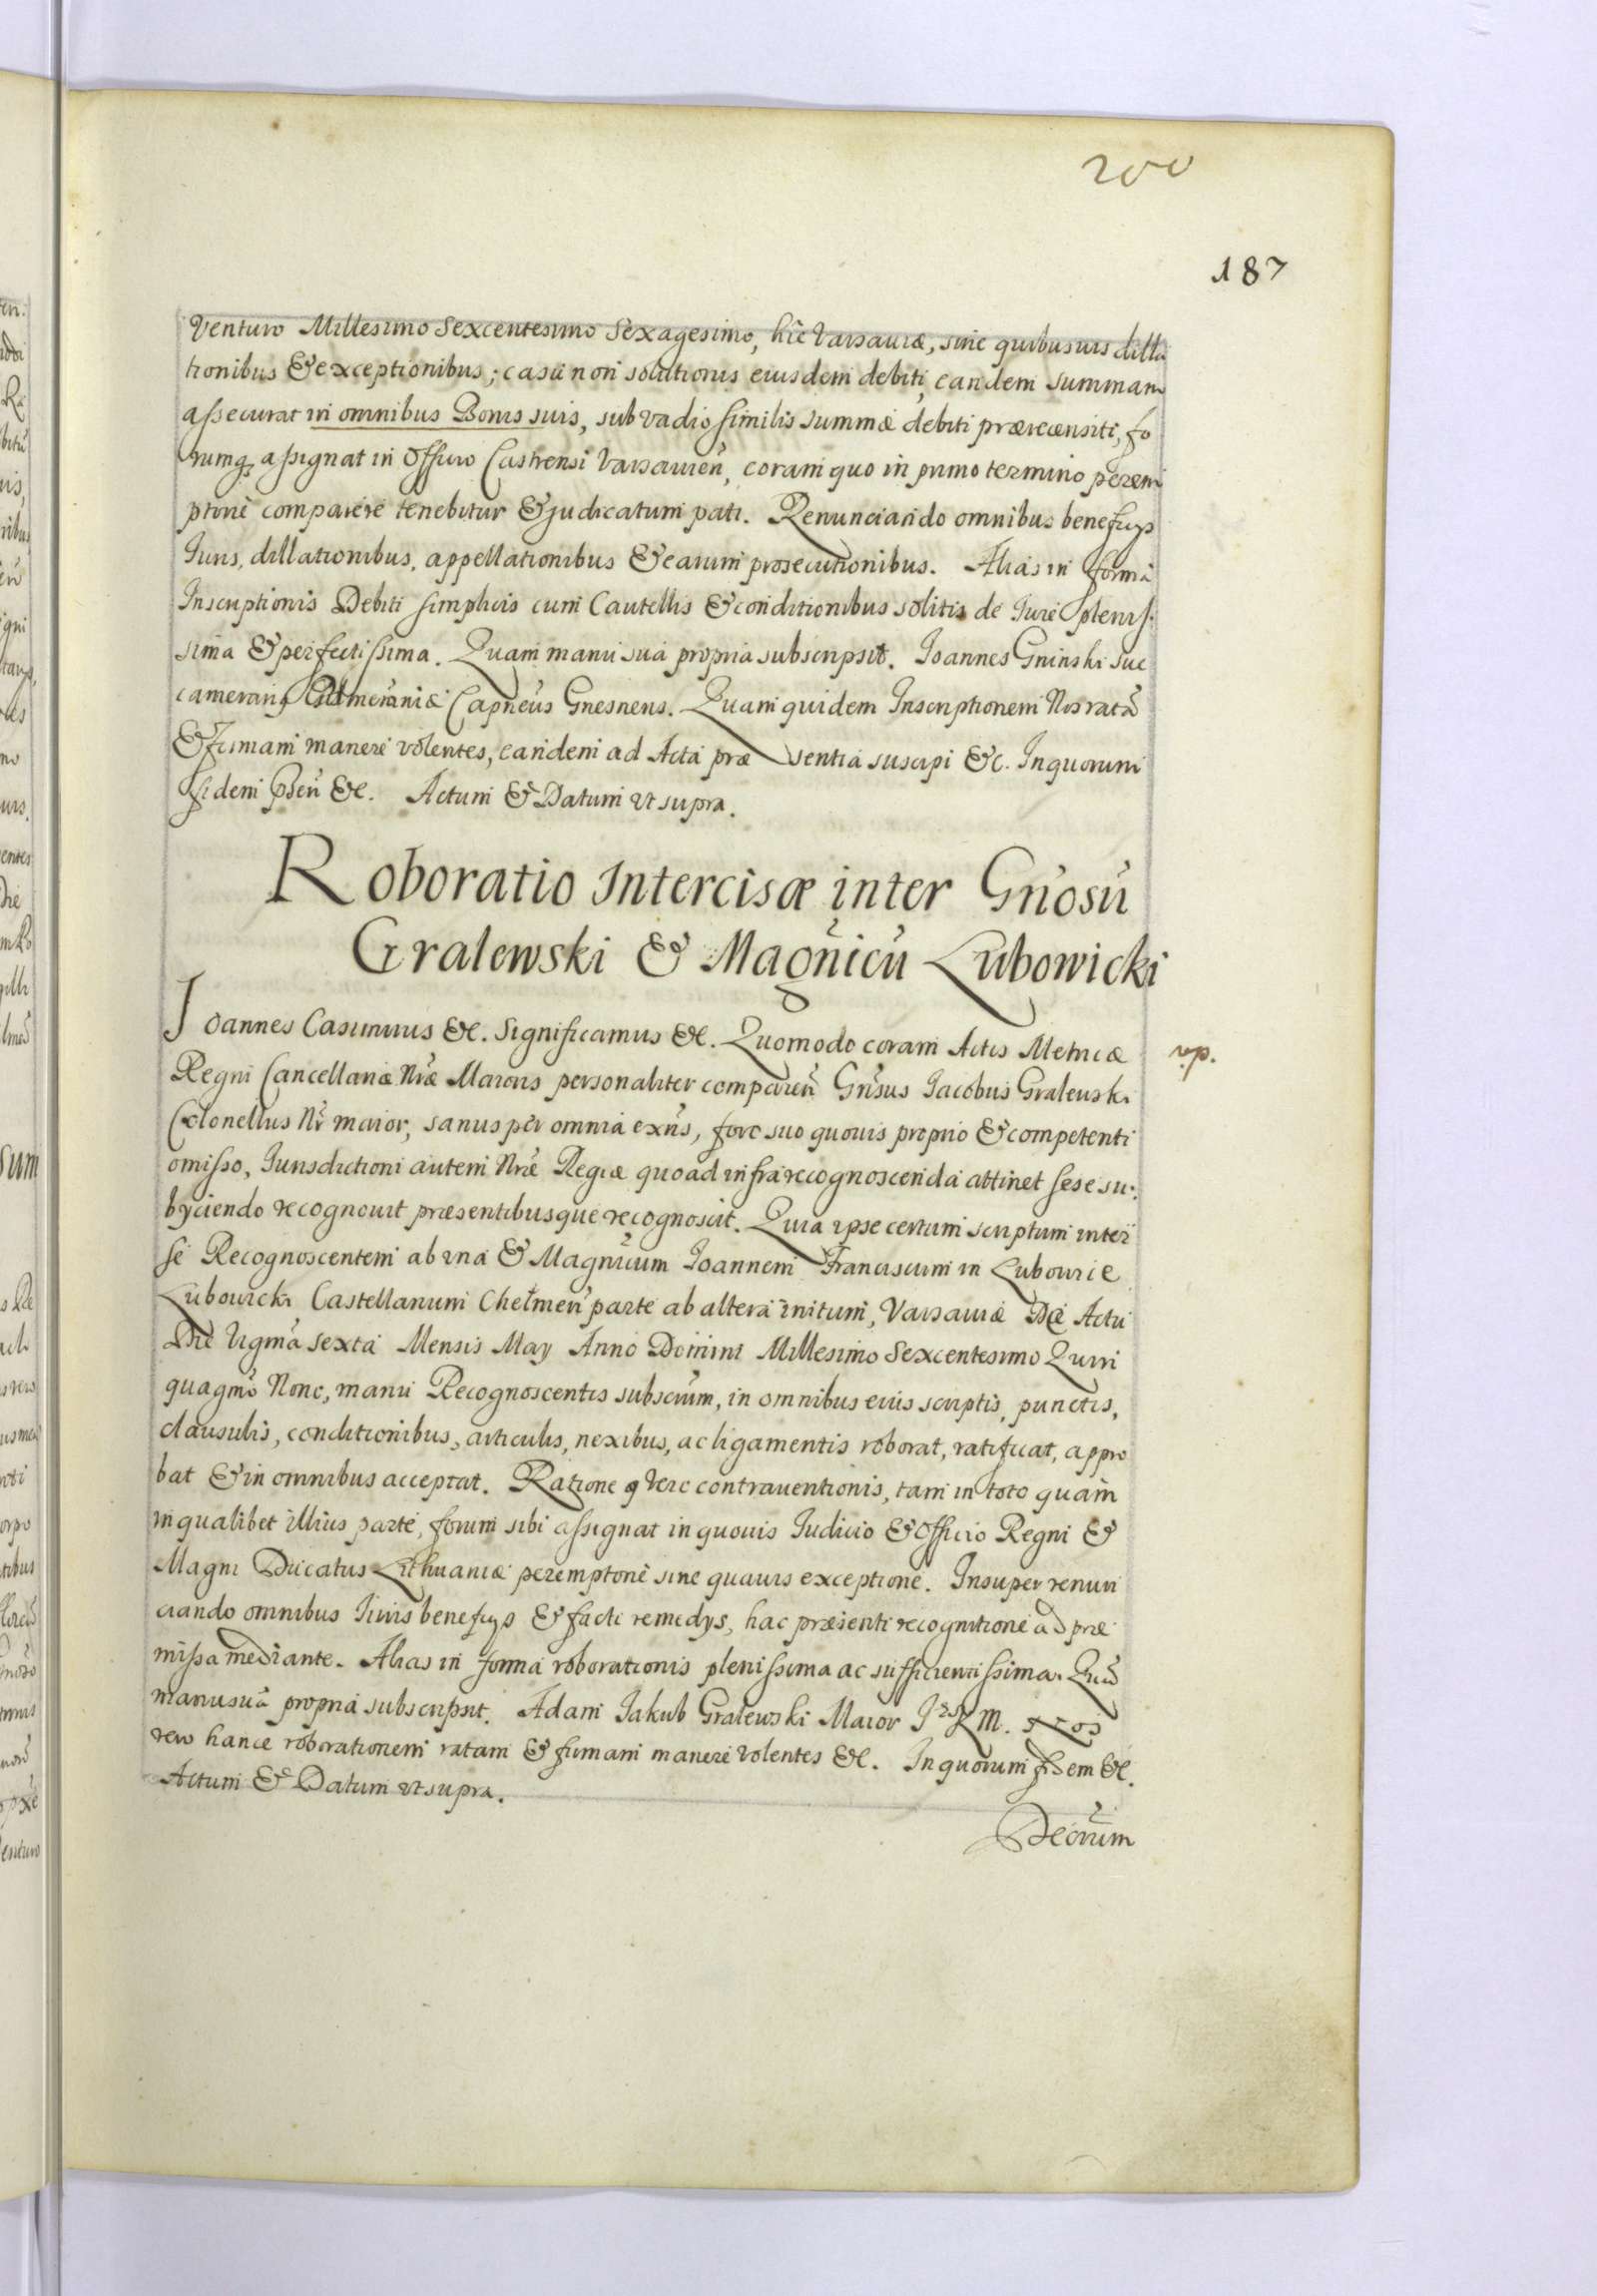 200
187
Venturo Millesimo Sexcentesimo Sexagesimo, hic Varsauiæ, sine quibusuis dilla
tionibus & exceptionibus; casu non solutionis eiusdem debiti, eandem summam
assecurat in omnibus Bonis suis, sub vadio similis summæ debiti prærecensiti, fo
rumq, assignat in Officio Castrensi Varsauien̄, coram quo in primo termino perem
ptorie comparere tenebitur & judicatum pati. Renunciando omnibus beneficys
Iuris, dillationibus, appellationibus & earum prosecutionibus. Alias in forma
Inscriptionis Debiti simplicis cum Cautellis & conditionibus solitis de Iure plenis.
sima & perfectissima. Quam manu sua propria subscripsit. Ioannes Gninski suc
camerariꝯ Pomeraniæ Capneūs Gnesnens. Quam quidem Inscriptionem Nos ratā
& firmam manere volentes, eandem ad Acta præ sentia suscipi &c. In quorum
fidem p̄sen̄ &c. Actum & Datum vt supra.
Roboratio Intercisæ inter Gn̄osū
Gralewski & Magn̄icū Lubowicki
Ioannes Casimirus &c. Significamus &c. Quomodo coram Actis Metricæ
rep.
Regni Cancellariæ Nr̄æ Maioris personaliter comparen̄ Gn̄sus Iacobus Gralewski
Colonellus Nr̄ maior, sanus per omnia exn̄s, foro suo quouis proprio & competenti
omisso, Iurisdictioni autem Nr̄æ Regiæ quo ad infra recognoscenda attinet sese su:
byciendo recognouit præsentibusque recognoscit. Quia ipse certum scriptum inter
se Recognoscentem ab vna & Magn̄icum Ioannem Franciscum in Lubowice
Lubowicki Castellanum Chełmen̄ parte ab altera initum, Varsauiæ De Actu
Die Vigm̄a sexta Mensis May Anno Domini Millesimo Sexcentesimo Quin
quagm̄o Nono, manu Recognoscentis subscr̄um, in omnibus eius scriptis, punctis,
clausulis, conditionibus, articulis, nexibus, ac ligamentis roborat, ratificat, appro
bat & in omnibus acceptat. Ratione vero contrauentionis, tam in toto quam
in qualibet illius parte, forum sibi assignat in quouis Iudicio & Officio Regni &
Magni Ducatus Lithuaniæ peremptorie sine quauis exceptione. Insuper renun
ciando omnibus Iuris beneficys & facti remedys, hac præsenti recognitione ad præ
missa mediante. Alias in forma roborationis plenissima ac sufficientissima. Quā
manu sua propria subscripsit. Adam Iakub Gralewski Maior J K M.
rew hance roborationem ratam & firmam manere volentes &c. In quorum fidem &c.
Actum & Datum vt supra.
Decr̄um